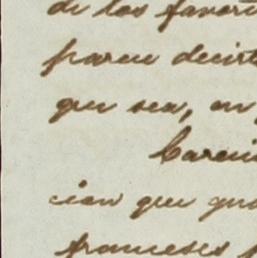 de los favori
parece decirte
que sea, en
Carecie
cion que gua
franceses p